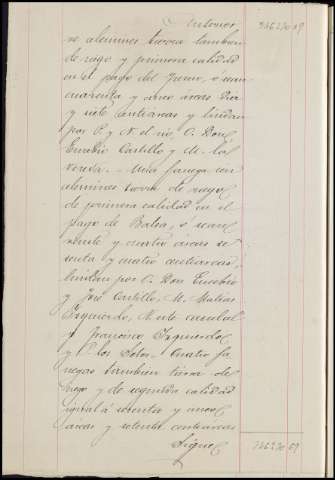 Anterior 226230.09
no celemines tierra tambien
de riego y primera calidad
en el pago del Juncar, ó sean
cuarenta y cinco áreas diez
y siete centiáreas y lindan
por P. y N. el rio, O. Don
Eusebio Castillo y M. la
Vereda.- Una fanega con
celemines tierra de riego
de primera calidad en el
pago de Balsa, ó sean
veinte y cuatro áreas se
senta y cuatro centiáreas,
lindan por O. Don Eusebio
y José Castillo, M. Matias
Izquierdo, N. este caudal
y Francisco Izquierdo
y P. los Sotos.- Cuatro fa
negas tambien tierra de
riego y de segunda calidad
igual á noventa y nueve
áreas y setenta centiáreas
Sigue 226230.09